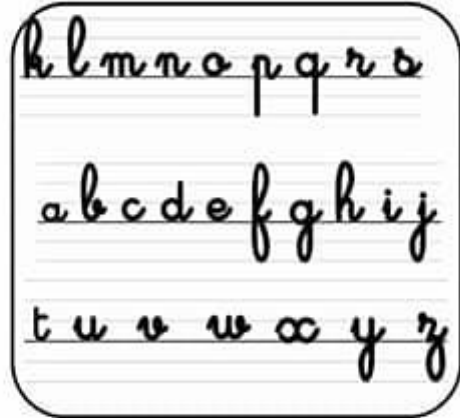 k l m n o p q r s
a b c d e f g h i j
t u v w x y z